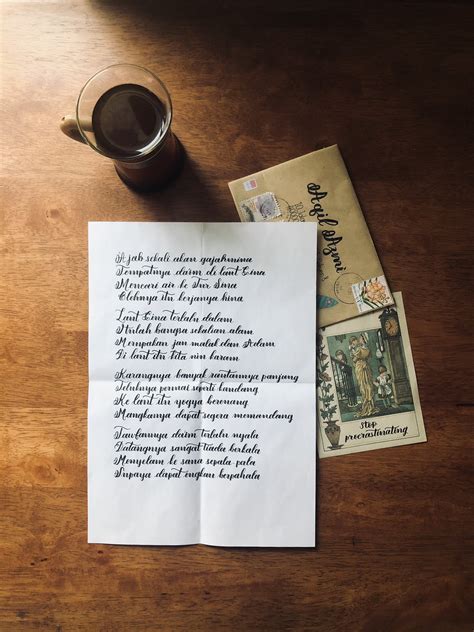 Ajab sekali akan gajahmina
Tempatnya daim di laut Cina
Mencari air ke Tur Sina
Olehnya itu kerjanya hina
Laut Cina terlalu dalam
Itulah bangsa sekalian alam
Merupakan jan malak dan Adam
Di laut itu kita nin karam
Karangnya banyak santannya panjang
Tubuhnya permai seperti lundang
Ke laut itu yogya berenang
Mangkanya dapat segera memandang
Taufannya daim terlalu nyala
Datangnya sangat tiada berkala
Menyelam ke sana sepala-pala
Supaya dapat engkau berpahala
Aqil Azmi
Stop
procrastinating